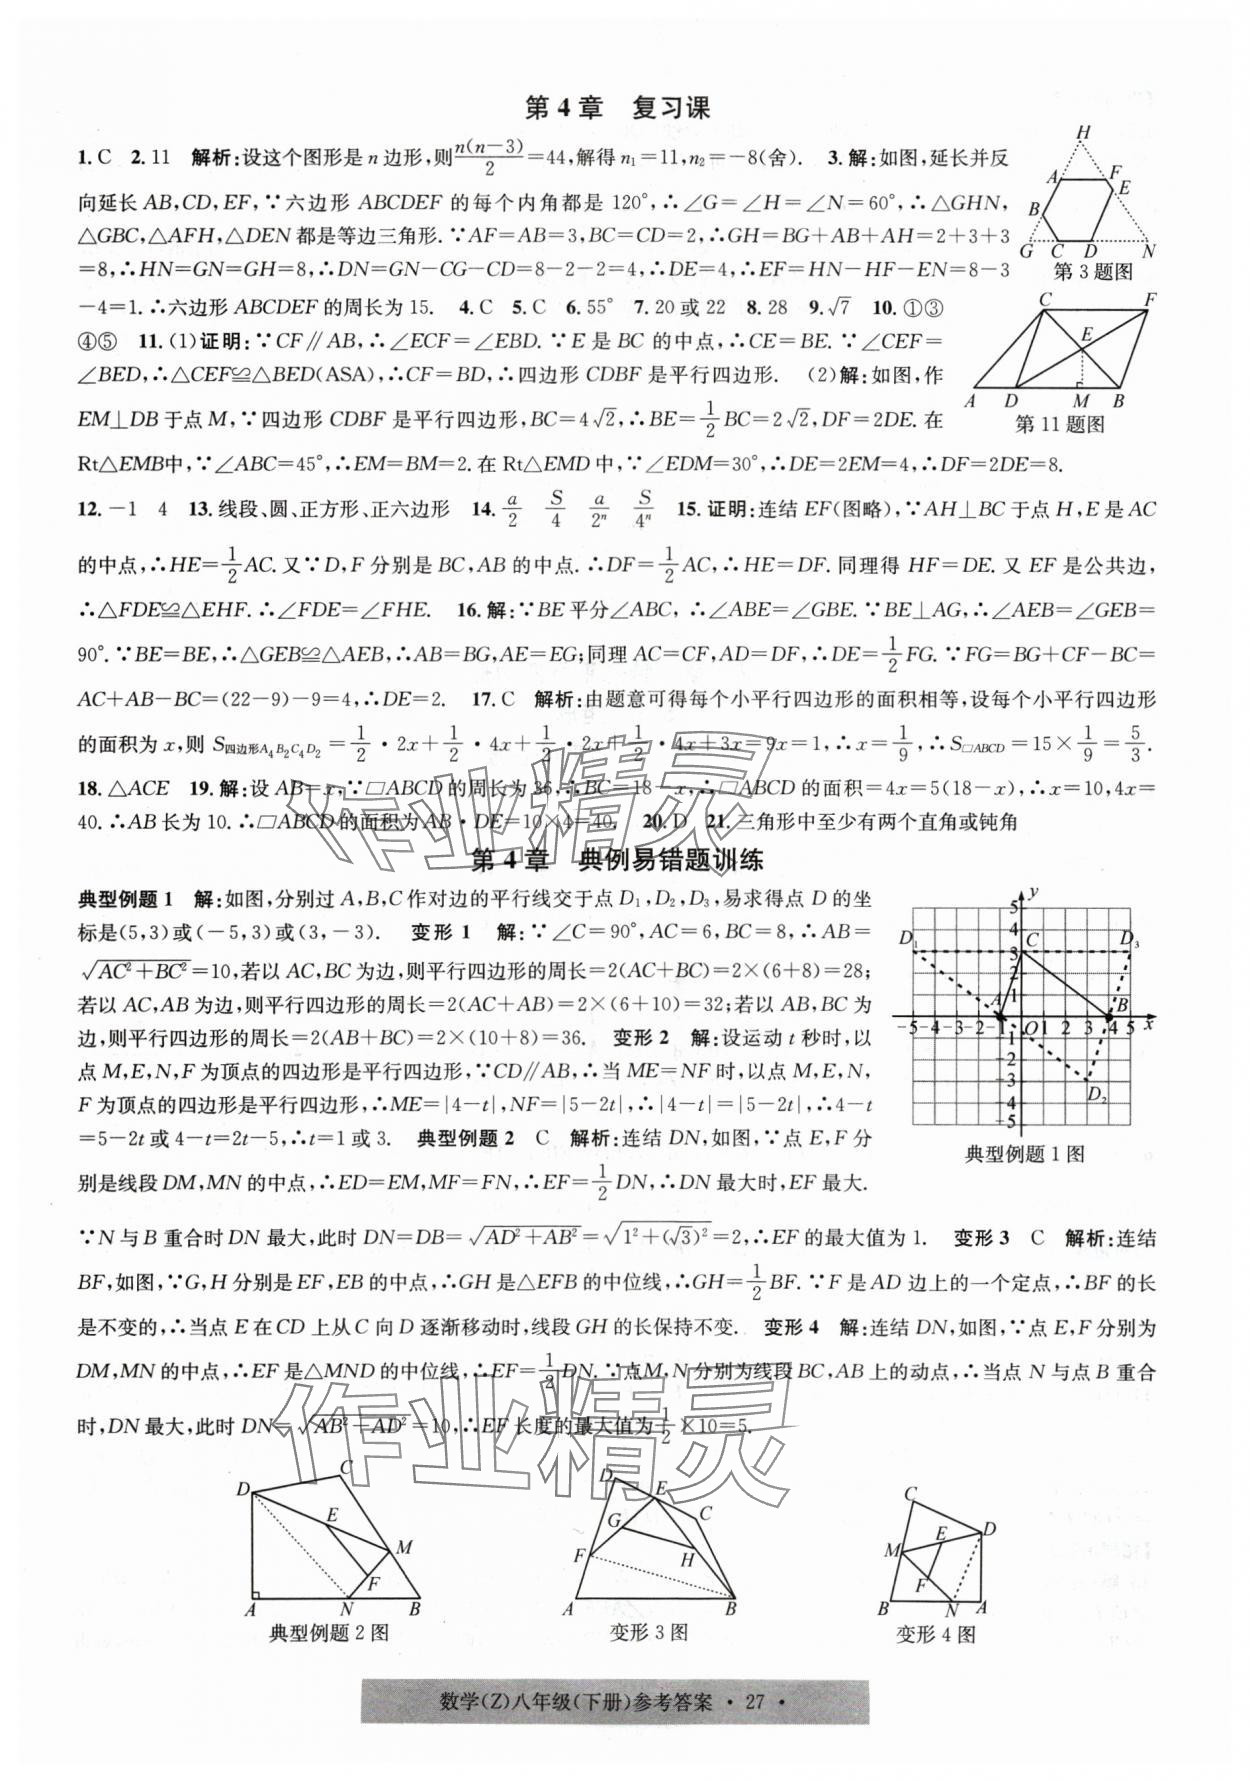 第4章 复习课
1. C 2. 11 解析:设这个图形是n边形,则n(n-3)/2=44,解得n₁=11,n₂=-8(舍). 3. 解:如图,延长并反
向延长AB,CD,EF,∵六边形ABCDEF的每个内角都是120°,∴∠G=∠H=∠N=60°,∴△GHN,
△GBC,△AFH,△DEN都是等边三角形.∵AF=AB=3,BC=CD=2,∴GH=BG+AB+AH=2+3+3
=8,∴HN=GN=GH=8,∴DN=GN-CG-CD=8-2-2=4,∴DE=4,∴EF=HN-HF-EN=8-3
-4=1.∴六边形ABCDEF的周长为15. 4. C 5. C 6. 55° 7. 20或22 8. 28 9. √7 10. ①③
④⑤ 11. (1)证明:∵CF∥AB,∴∠ECF=∠EBD.∵E是BC的中点,∴CE=BE.∵∠CEF=
∠BED,∴△CEF≌△BED(ASA),∴CF=BD,∴四边形CDBF是平行四边形. (2)解:如图,作
EM⊥DB于点M,∵四边形CDBF是平行四边形,BC=4√2,∴BE=1/2BC=2√2,DF=2DE.在
Rt△EMB中,∵∠ABC=45°,∴EM=BM=2.在Rt△EMD中,∵∠EDM=30°,∴DE=2EM=4,∴DF=2DE=8.
H
A F
E
B
G C D N
第3题图
C F
E
A D M B
第11题图
12. -1 4 13. 线段、圆、正方形、正六边形 14. a/2 S/4 a/2ⁿ S/4ⁿ 15. 证明:连结EF(图略),∵AH⊥BC于点H,E是AC
的中点,∴HE=1/2AC.又∵D,F分别是BC,AB的中点.∴DF=1/2AC,∴HE=DF.同理得HF=DE.又EF是公共边,
∴△FDE≌△EHF.∴∠FDE=∠FHE. 16. 解:∵BE平分∠ABC, ∴∠ABE=∠GBE.∵BE⊥AG,∴∠AEB=∠GEB=
90°.∵BE=BE,∴△GEB≌△AEB,∴AB=BG,AE=EG;同理AC=CF,AD=DF,∴DE=1/2FG.∵FG=BG+CF-BC=
AC+AB-BC=(22-9)-9=4,∴DE=2. 17. C 解析:由题意可得每个小平行四边形的面积相等,设每个小平行四边形
的面积为x,则S四边形A₄B₂C₄D₂=1/2·2x+1/2·4x+1/2·2x+1/2·4x+3x=9x=1,∴x=1/9,∴S▱ABCD=15×1/9=5/3.
18. △ACE 19. 解:设AB=x,∵▱ABCD的周长为36,∴BC=18-x,∴▱ABCD的面积=4x=5(18-x),∴x=10,4x=
40.∴AB长为10.∴▱ABCD的面积为AB·DE=10×4=40. 20. D 21. 三角形中至少有两个直角或钝角
第4章 典例易错题训练
典型例题1 解:如图,分别过A,B,C作对边的平行线交于点D₁,D₂,D₃,易求得点D的坐
标是(5,3)或(-5,3)或(3,-3). 变形1 解:∵∠C=90°,AC=6,BC=8,∴AB=
√(AC²+BC²)=10,若以AC,BC为边,则平行四边形的周长=2(AC+BC)=2×(6+8)=28;
若以AC,AB为边,则平行四边形的周长=2(AC+AB)=2×(6+10)=32;若以AB,BC为
边,则平行四边形的周长=2(AB+BC)=2×(10+8)=36. 变形2 解:设运动t秒时,以
点M,E,N,F为顶点的四边形是平行四边形,∵CD∥AB,∴当ME=NF时,以点M,E,N,
F为顶点的四边形是平行四边形,∴ME=|4-t|,NF=|5-2t|,∴|4-t|=|5-2t|,∴4-t
=5-2t或4-t=2t-5,∴t=1或3. 典型例题2 C 解析:连结DN,如图,∵点E,F分
别是线段DM,MN的中点,∴ED=EM,MF=FN,∴EF=1/2DN,∴DN最大时,EF最大.
y
5
4
D₁ 3 C D₃
2
1
A B
-5 -4 -3 -2 -1 O 1 2 3 4 5 x
-1
-2
-3
D₂
-4
-5
典型例题1图
∵N与B重合时DN最大,此时DN=DB=√(AD²+AB²)=√(1²+(√3)²)=2,∴EF的最大值为1. 变形3 C 解析:连结
BF,如图,∵G,H分别是EF,EB的中点,∴GH是△EFB的中位线,∴GH=1/2BF.∵F是AD边上的一个定点,∴BF的长
是不变的,∴当点E在CD上从C向D逐渐移动时,线段GH的长保持不变. 变形4 解:连结DN,如图,∵点E,F分别为
DM,MN的中点,∴EF是△MND的中位线,∴EF=1/2DN.∵点M,N分别为线段BC,AB上的动点,∴当点N与点B重合
时,DN最大,此时DN=√(AB²+AD²)=10,∴EF长度的最大值为1/2×10=5.
C
D
E
M
F
A N B
典型例题2图
D E
G C
F H
A B
变形3图
C
D
E
M
F
B N A
变形4图
作业精灵
作业精灵
数学(Z)八年级(下册)参考答案 · 27 ·